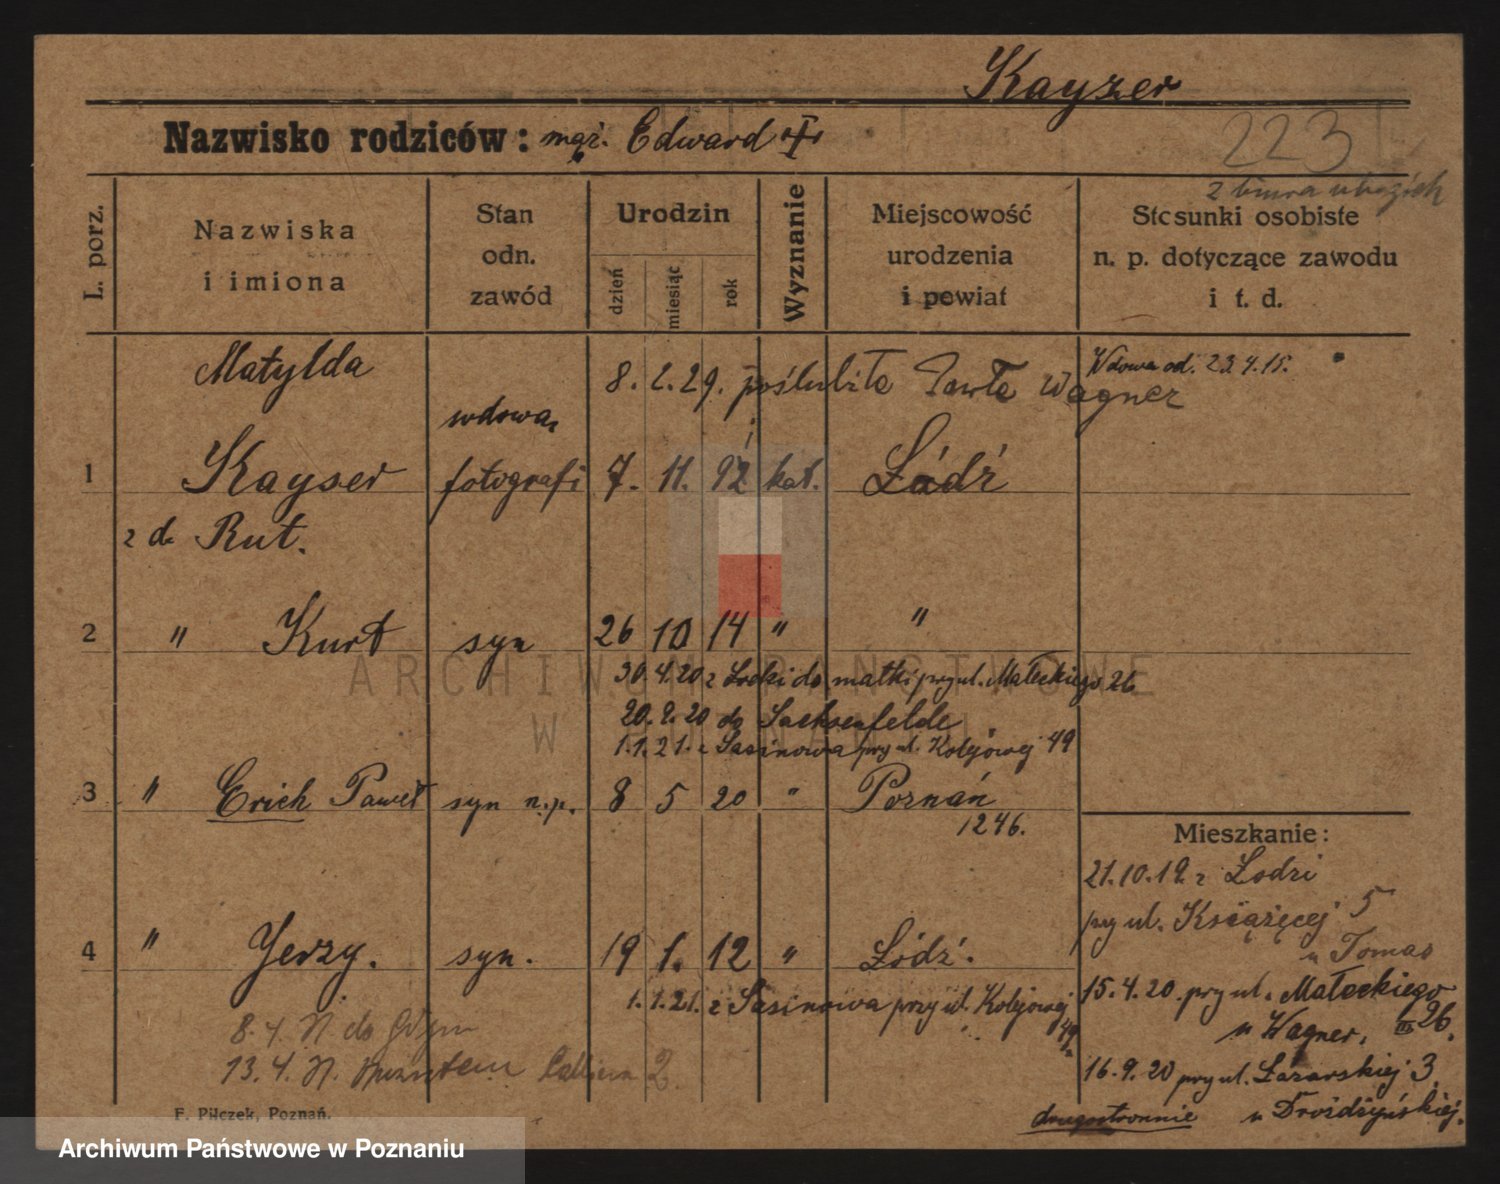 Kayzer
Nazwisko rodziców: mąż. Edward
223
z biura
L. porz.
Nazwiska
i imiona
Stan
odn.
zawód
Urodzin
dzień
miesiąc
rok
Wyznanie
Miejscowość
urodzenia
i powiat
Stosunki osobiste
n. p. dotyczące zawodu
i t. d.
Matylda
8. 2. 29. poślubiła Pawła Wagner
Wdowa od. 23.4.15.
wdowa
1 Kayser fotografi 7. 11. 92 kat. Łódź
z d. Rut.
2 " Kurt syn 26 10 14 " "
30.4.20 z Łodzi do matki przy ul. Małeckiego 26
20.9.20 do Sachsenfelde
1.1.21. z Sasinowa przy ul. Kolejowej 49
3 " Erich Paweł syn n.p. 8 5 20 " Poznań
1246.
4 " Jerzy. syn. 19 1. 12 " Łódź.
1.1.21. z Sasinowa przy ul. Kolejowej
49
8.4. N. do Gdyni
13.4. N. 2.
Mieszkanie:
21.10.19. z Łodzi
przy ul. Książęcej 5
u Tomas
15.4.20 przy ul. Małeckiego
u Wagner, III 26.
16.9.20 przy ul. Łazarskiej 3
u Drożdżyńskiej.
drugostronnie
F. Pilczek, Poznań.
ARCHIWUM PAŃSTWOWE
W POZNANIU
Archiwum Państwowe w Poznaniu